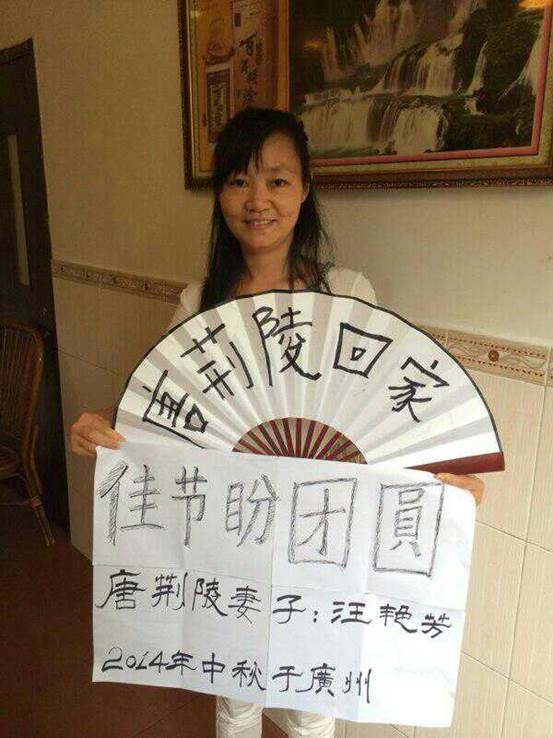 唐荆陵回家
佳节盼团圓
唐荆陵妻子：汪艳芳
2014年中秋于廣州